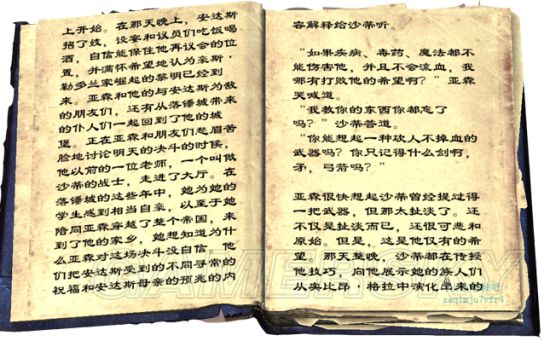 上开始。在那天晚上，安达斯
招了妓，设宴和议员们吃饭喝
酒，自信能保住他再议会的位
置，并满怀希望地认为亲斯·
勒多兰家崛起的黎明已经到
来。亚森和他的与安达斯为敌
的朋友们，还有从落锤城带来
的仆人们一起回到了他的城
堡。正在亚森和朋友们愁眉苦
脸地讨论明天的决斗的时候，
他以前的一位老师，一个叫做
沙蒂的战士，走进了大厅。在
落锤城的这些年中，她为她的
学生感到相当自豪，以至于她
陪同亚森穿越了整个帝国，来
到了他的家乡，她想知道为什
么亚森对这场决斗没自信。他
们把安达斯受到的不同寻常的
祝福和安达斯母亲的预兆的内
容解释给沙蒂听。
“如果疾病、毒药、魔法都不
能伤害他，并且不会流血，我
哪有打败他的希望啊？”亚森
哭喊道。
“我教你的东西你都忘了
吗？”沙蒂答道。
“你能想起一种砍人不掉血的
武器吗？你只记得什么剑啊，
矛，弓箭吗？”
亚森很快想起沙蒂曾经提过得
一把武器，但那太扯淡了。还
不仅是扯淡而已，还很可悲和
原始。但是，这是他仅有的希
望。那天整晚，沙蒂都在传授
他技巧，向他展示她的族人们
从奥比昂·格拉中演化出来的
GAMERSKY
zaqimju7vfr4